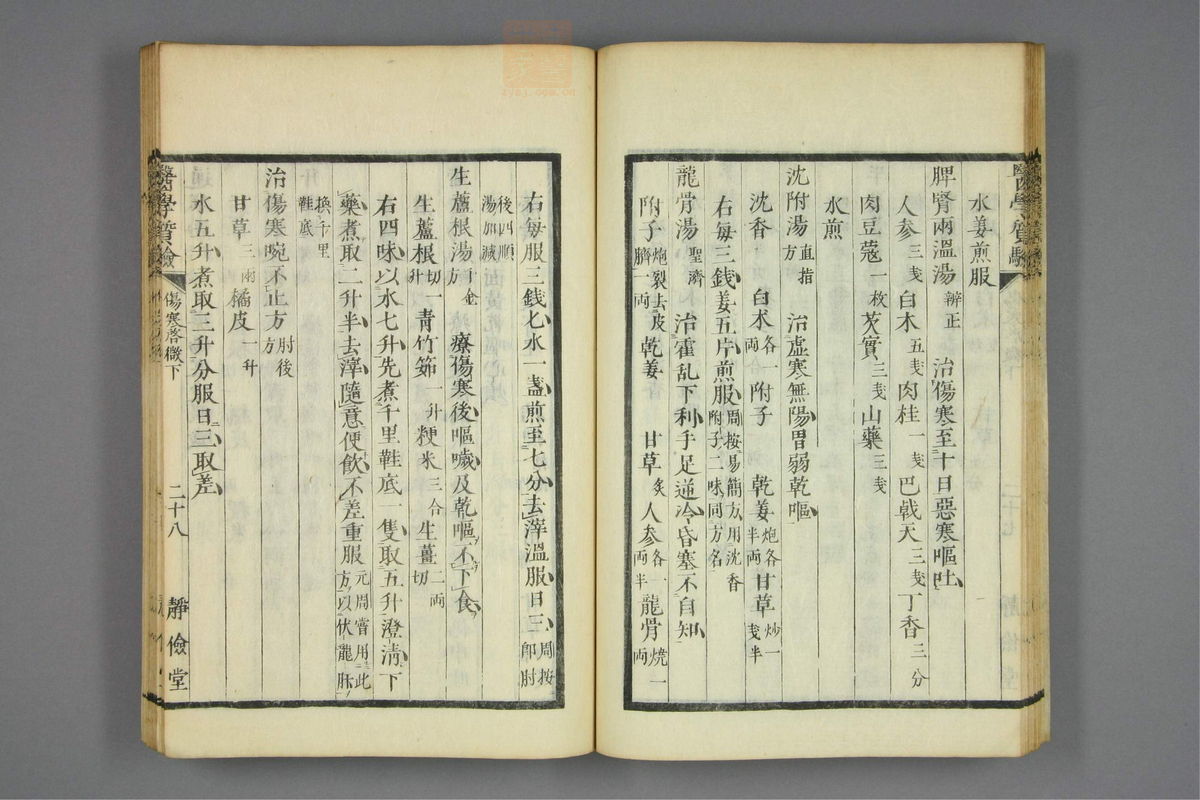 醫學質驗
水姜煎服
脾腎兩溫湯 辨正 治傷寒至十日惡寒嘔吐
人参 三戋 白木 五戋 肉桂 一戋 巴戟天 三戋 丁香 三分
肉豆蔻 一枚 芡實 三戋 山藥 三戋
水煎
沈附湯 直指方 治虛寒無陽胃弱乾嘔
沈香 白术 各一両 附子 乾姜 炮各半両 甘草 炒一戋半
右每三錢姜五片煎服 周按易簡方用沈香附子二味同方名
龍骨湯 聖濟 治霍乱下利手足逆冷昏塞不自知
附子 炮裂去皮臍一両 乾姜 甘草 炙 人参 各一両半 龍骨 燒一両
右每服三錢匕水一盞煎至七分去滓溫服日三 周按即肘
後四順湯加減
生蘆根湯 千金方 療傷寒後嘔噦及乾嘔不下食
生蘆根 切一升 青竹筎 一升 粳米 三合 生薑 二両切
右四味以水七升先煮千里鞋底一隻取五升澄淸下
藥煮取二升半去滓隨意便飲不差重服 元周嘗用此方以伏龍肝
換千里鞋底
治傷寒啘不止方 肘後方
甘草 三両 橘皮 一升
水五升煮取三升分服日三取差
醫學質驗 傷寒啓微下 二十八 靜儉堂